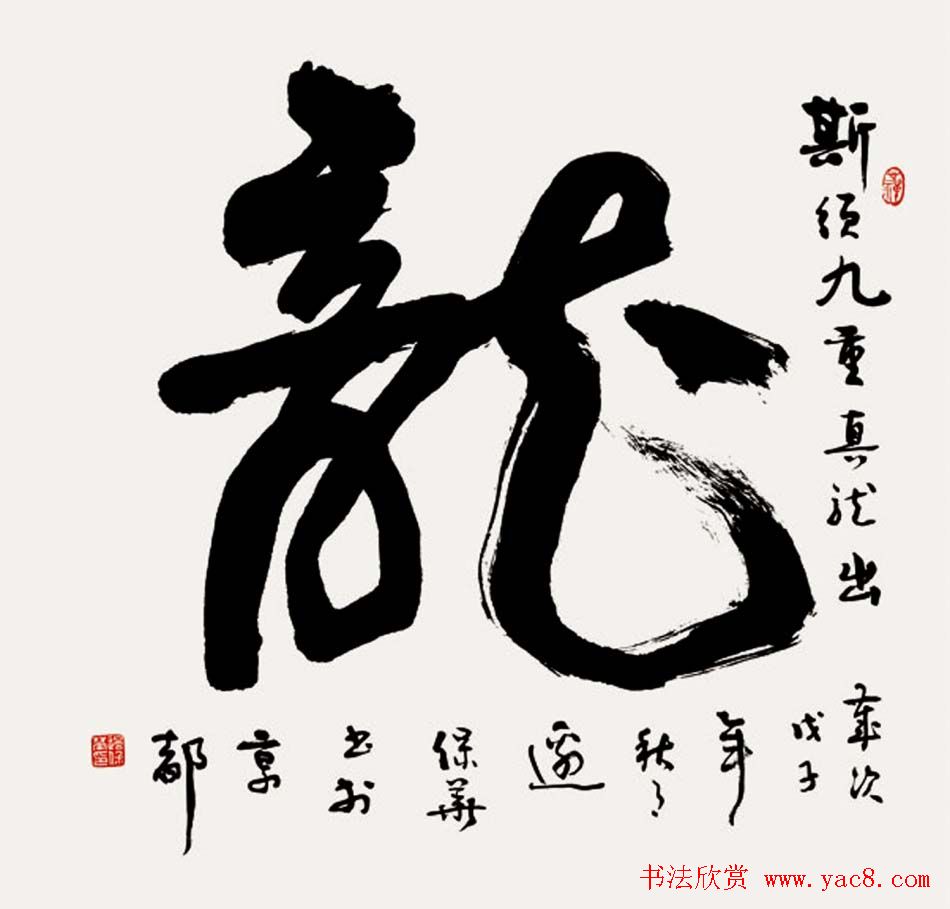 龍
斯須九重真龍出
歲次
戊子
年
秋月
邊
保華
書於
京
都
书法欣赏 www.yac8.com